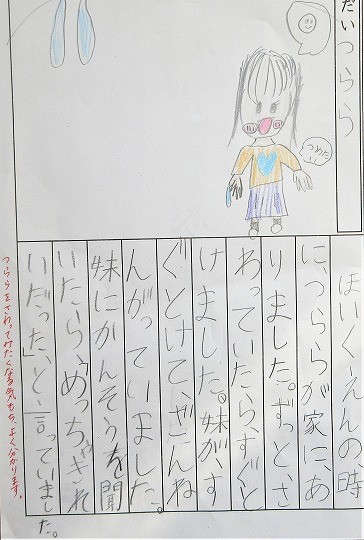 だい つらら
つめた
はいくしえんの時
に、つららが家に、あ
りました。ずっと、さ
わっていたら、すぐと
けました。妹が、す
ぐとけて、ざんね
んがっていました。
妹にかんそうを聞
いたら、「めっちゃきれ
いだった」と、言っていまし
た。
つららをさわってみたくなる気もち、よく分かります。